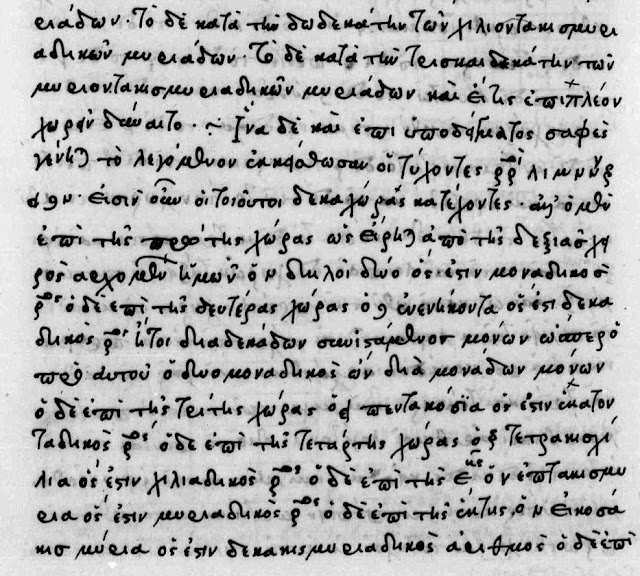 ριάδων· τὸ δὲ κατὰ τὴν δωδεκάτην τῶν χιλιοντακισμυρι
αδικῶν μυριάδων· τὸ δὲ κατὰ τὴν τρισκαιδεκάτην τῶν
μυριοντακισμυριαδικῶν μυριάδων καὶ εἴ τις ἐπιπλέον
χωρεῖν δύναιτο· ἵνα δὲ καὶ ἐπὶ ὑποδείγματος σαφὲς
γένηται τὸ λεγόμενον ἐκκείσθωσαν οἱ τυχόντες
εἰσὶν οὖν οἱ τοιοῦτοι δέκα χώρας κατέχοντες· ἀλλ' ὁ μὲν
ἐπὶ τῆς πρώτης χώρας ὡς εἴρηται ἀπὸ τῆς δεξιᾶς χει
ρὸς ἀρχομένων ἡμῶν δηλοῖ δύο ὅς ἐστιν μοναδικὸς
ὁ δὲ ἐπὶ τῆς δευτέρας χώρας ὁ ἐνενήκοντα ὅς ἐστι δεκα
δικὸς ἤτοι διὰ δεκάδων συνιστάμενος μόνων ὥσπερ ὁ
πρὸ αὐτοῦ ὁ δύο μοναδικὸς ὢν διὰ μονάδων μόνων
ὁ δὲ ἐπὶ τῆς τρίτης χώρας πεντακόσια ὅς ἐστιν ἑκατον
ταδικὸς ὁ δὲ ἐπὶ τῆς τετάρτης χώρας τετρακισχί
λια ὅς ἐστιν χιλιαδικὸς ὁ δὲ ἐπὶ τῆς ἑπτακισμύ
ρια ὅς ἐστιν μυριαδικὸς ὁ δὲ ἐπὶ τῆς ἕκτης εἰκοσά
κις μύρια ὅς ἐστιν δεκακισμυριαδικὸς ἀριθμὸς ὁ δὲ ἐπὶ